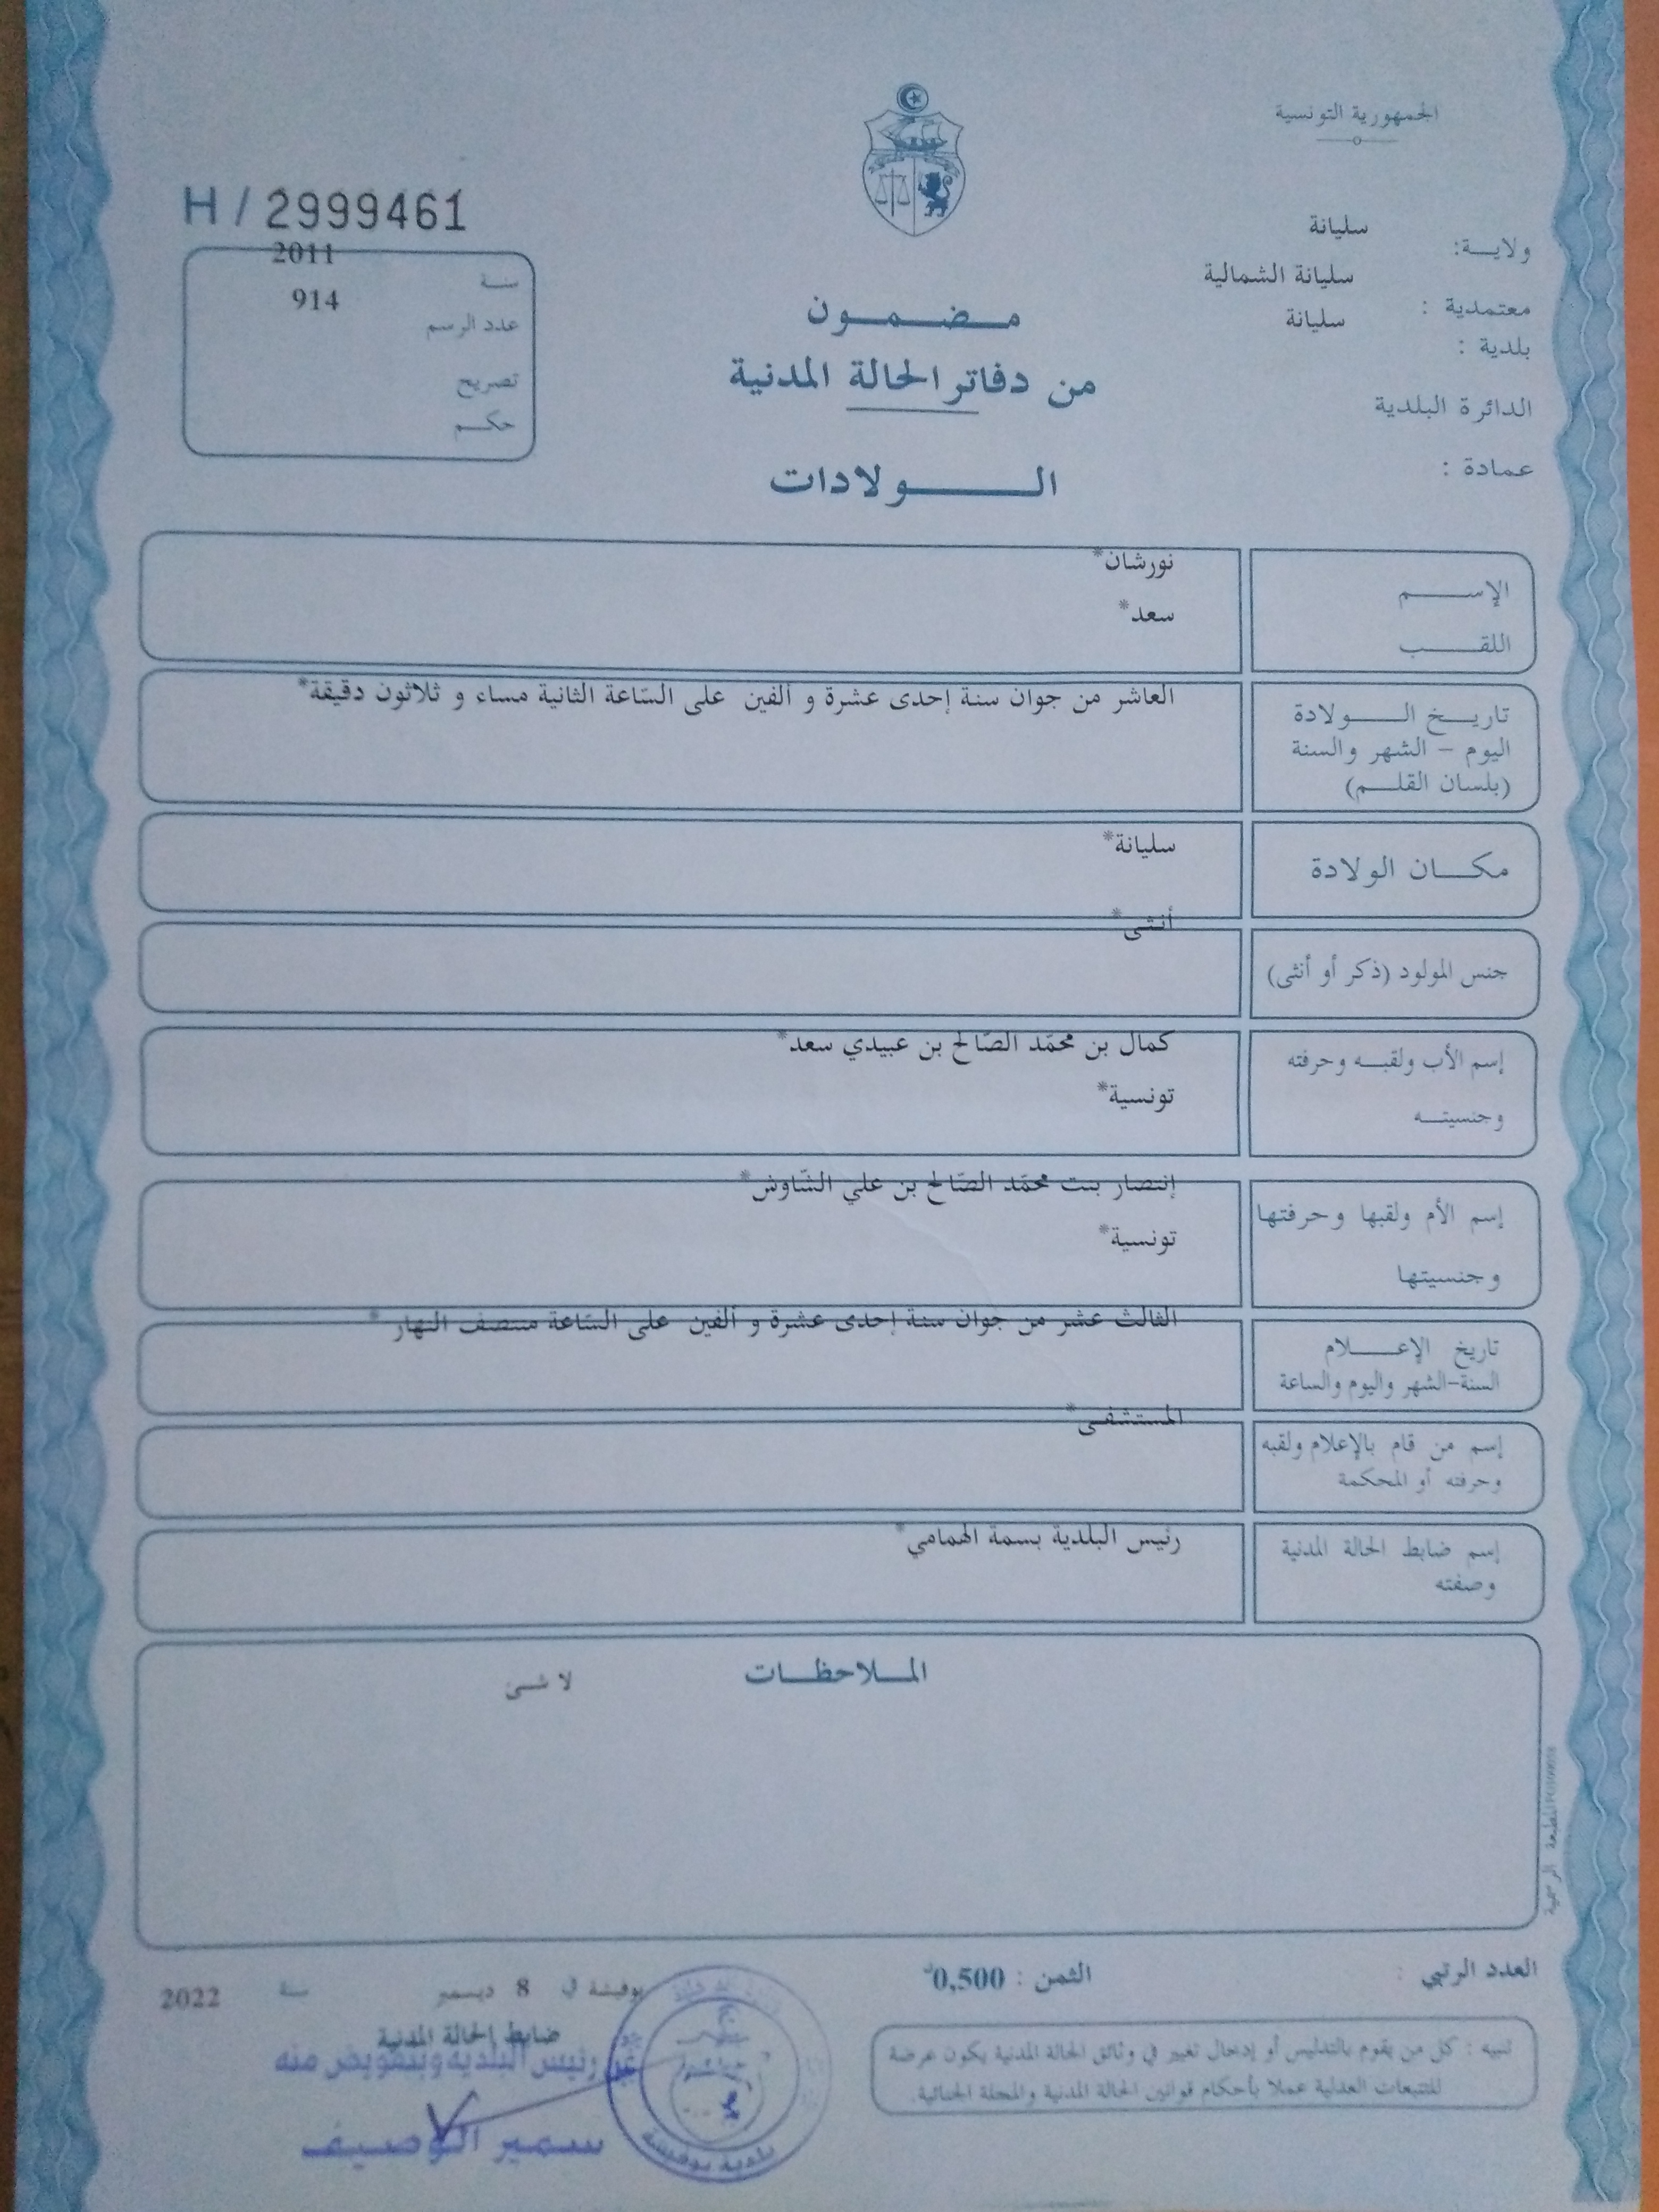 الجمهورية التونسية
ولايـــة: سليانة
معتمدية : سليانة الشمالية
بلدية : سليانة
الدائرة البلدية
عمادة :
مـضـمـون
من دفاتر الحالة المدنية
الـولادات
H / 2999461
سنـة 2011
عدد الرسم 914
تصريح
حكـم
الإســـم نورشان*
اللقـــب سعد*
تاريـخ الـــولادة العاشر من جوان سنة إحدى عشرة و ألفين على السّاعة الثانية مساء و ثلاثون دقيقة*
اليوم - الشهر والسنة
(بلسان القلـــم)
مكـــان الولادة سليانة*
جنس المولود (ذكر أو أنثى) أنثى*
إسم الأب ولقبـه وحرفته كمال بن محمّد الصّالح بن عبيدي سعد*
وجنسيتـه تونسية*
إسم الأم ولقبها وحرفتها إنتصار بنت محمّد الصّالح بن علي الشّاوش*
وجنسيتها تونسية*
تاريخ الإعـــلام الثالث عشر من جوان سنة إحدى عشرة و ألفين على السّاعة منتصف النهار *
السنة-الشهر واليوم والساعة
إسم من قام بالإعلام ولقبه المستشفى*
وحرفته أو المحكمة
إسم ضابط الحالة المدنية رئيس البلدية بسمة الهمامي*
وصفته
الملاحظـات
لا شئ
المطبعة الرسمية
العدد الرتبي :
الثمن : 0,500د
تنبيه : كل من يقوم بالتدليس أو إدخال تغيير في وثائق الحالة المدنية يكون عرضة
للتتبعات العدلية عملا بأحكام قوانين الحالة المدنية والمجلة الجنائية.
بوفيشة في 8 ديسمبر سنة 2022
ضابط الحالة المدنية
عن رئيس البلدية وبتفويض منه
سمير الوصيف
بلدية بوفيشة